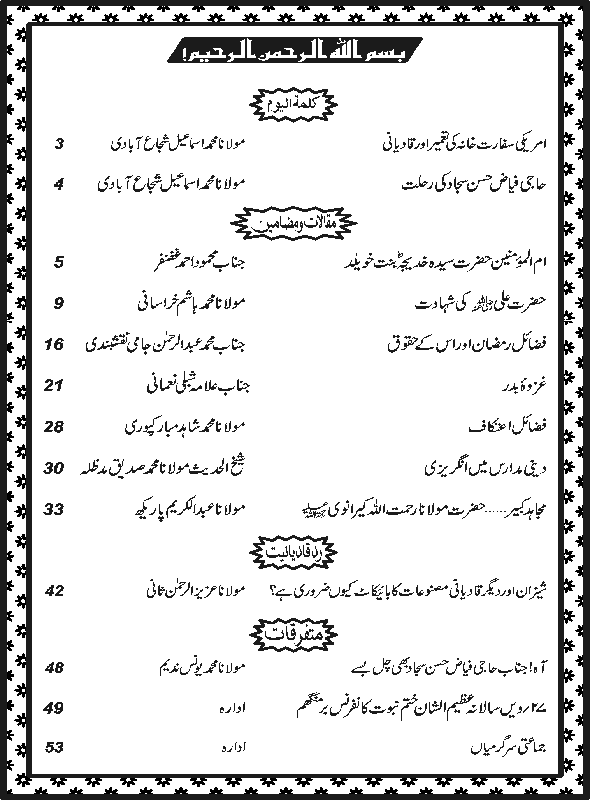 بسم اللہ الرحمن الرحیم!
کلمۃ الیوم
امریکی سفارت خانہ کی تعمیر اور قادیانی مولانا محمد اسماعیل شجاع آبادی 3
حاجی فیاض حسن سجاد کی رحلت مولانا محمد اسماعیل شجاع آبادی 4
مقالات و مضامین
ام المؤمنین حضرت سیدہ خدیجہؓ بنت خویلد جناب محمود احمد غضنفر 5
حضرت علی رضی اللہ عنہ کی شہادت مولانا محمد ہاشم خراسانی 9
فضائل رمضان اور اس کے حقوق جناب محمد عبدالرحمٰن جامی نقشبندی 16
غزوۂ بدر جناب علامہ شبلی نعمانی 21
فضائل اعتکاف مولانا محمد شاہد مبارکپوری 28
دینی مدارس میں انگریزی شیخ الحدیث مولانا محمد صدیق مدظلہ 30
مجاہد کبیر...... حضرت مولانا رحمت اللہ کیرانوی رحمۃ اللہ علیہ مولانا عبدالکریم پاریکھ 33
رد قادیانیت
شیزان اور دیگر قادیانی مصنوعات کا بائیکاٹ کیوں ضروری ہے؟ مولانا عزیز الرحمٰن ثانی 42
متفرقات
آہ! جناب حاجی فیاض حسن سجاد بھی چل بسے مولانا محمد یونس ندیم 48
۲۷؍ ویں سالانہ عظیم الشان ختم نبوت کانفرنس برمنگھم ادارہ 49
جماعتی سرگرمیاں ادارہ 53